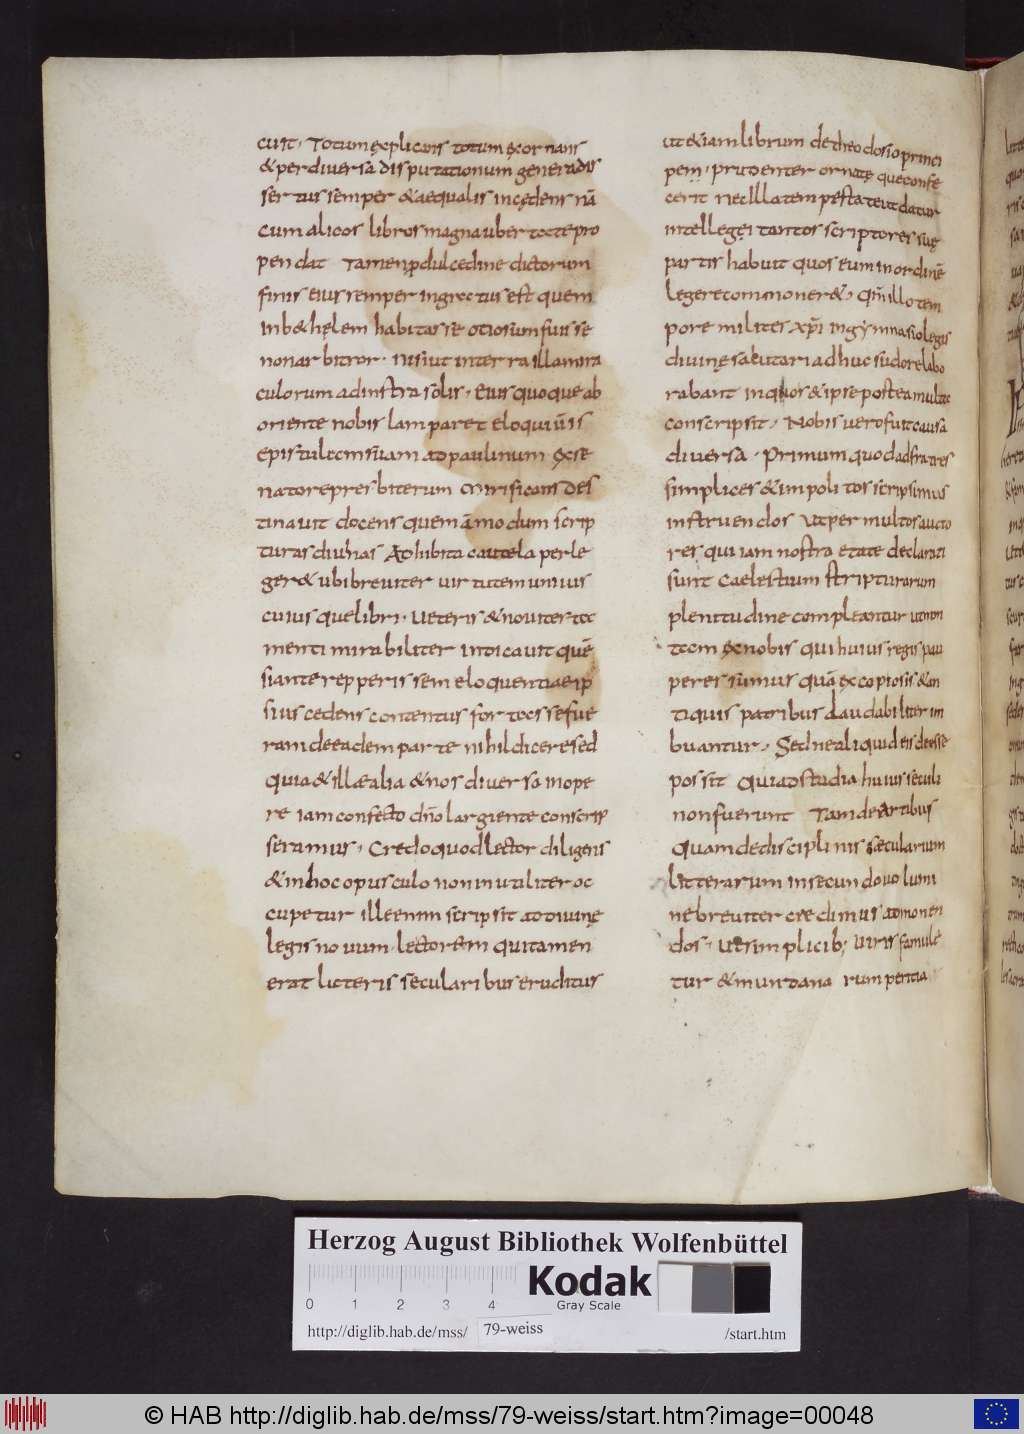 cuit · Totum explicans totum exornans
& per diuersa disputationum genera dis
sertus semper & aequalis incędens nā
cum alicos libros magna ubertate pro
pendat Tamen ꝓ dulcedine dictorum
finis eius semper ingratus est quem
in b&hęlem habitasse otiosum fuisse
non arbitror · nisi ut in terra illa mira
culorum ad instra solis · eius quoque ab
oriente nobis lampar& eloquiū is
epistulam suam ad paulinum ex se
natore presbiterum mirificans des
tinauit docens quem ad modum scrip
turas diuinas Adhibita cautela perle
ger& ubi breuiter uirtutem uniius
cuiusque libri · ueteris & noui testa
menti mirabiliter indicauit quē
si ante repperissem eloquentiae ip
sius cedens contentus fortasse fue
ram de eadem parte nihil dicere sed
quia & ille alia & nos diuersa in ope
re iam confecto dño largiente conscrip
seramus · Credo quod lector diligens
& in hoc opusculo non inutiliter oc
cupetur ille enim scripsit ad diuinę
legis nouum lectorem qui tamen
erat litteris secularibus eruditus
ut & iam librum de theodosio princi
pem · prudenter ornatę que confe
cerit nec illa tempesta te ut datur
intellegei tantos scriptores suę
partis habuit quos eum in ordinē
legere commoner& · Qui illo tem
pore milites xp̄i in gymnasio legis
diuinę salutari adhuc sudore labo
rabant in quos & ipse postea multa
conscripsit · Nobis uero fuit causa
diuersa · Primum quod ad fratres
simplices & impolitos scripsimus
instruendos Ut per multos aucto
res qui iam nostra etate declarati
sunt caelestium scripturarum
plenitudine compleantur ut non
tam ex nobis qui huius regis pau
peres sumus quā ex copiosis & an
tiquis patribus laudabiliter im
buantur · Sed ne aliquid eis deesse
possit Qui ad studia huius sęculi
non fuerunt Tam de artibus
Quam de disciplinis sæcularum
litterarum in secundo uolumi
ne breuiter credimus admonen
dos · ut simplicib; uiris famule
tur & mundana rum peritia
Herzog August Bibliothek Wolfenbüttel
0 1 2 3 4
Kodak
Gray Scale
http://diglib.hab.de/mss/ 79-weiss /start.htm
© HAB http://diglib.hab.de/mss/79-weiss/start.htm?image=00048